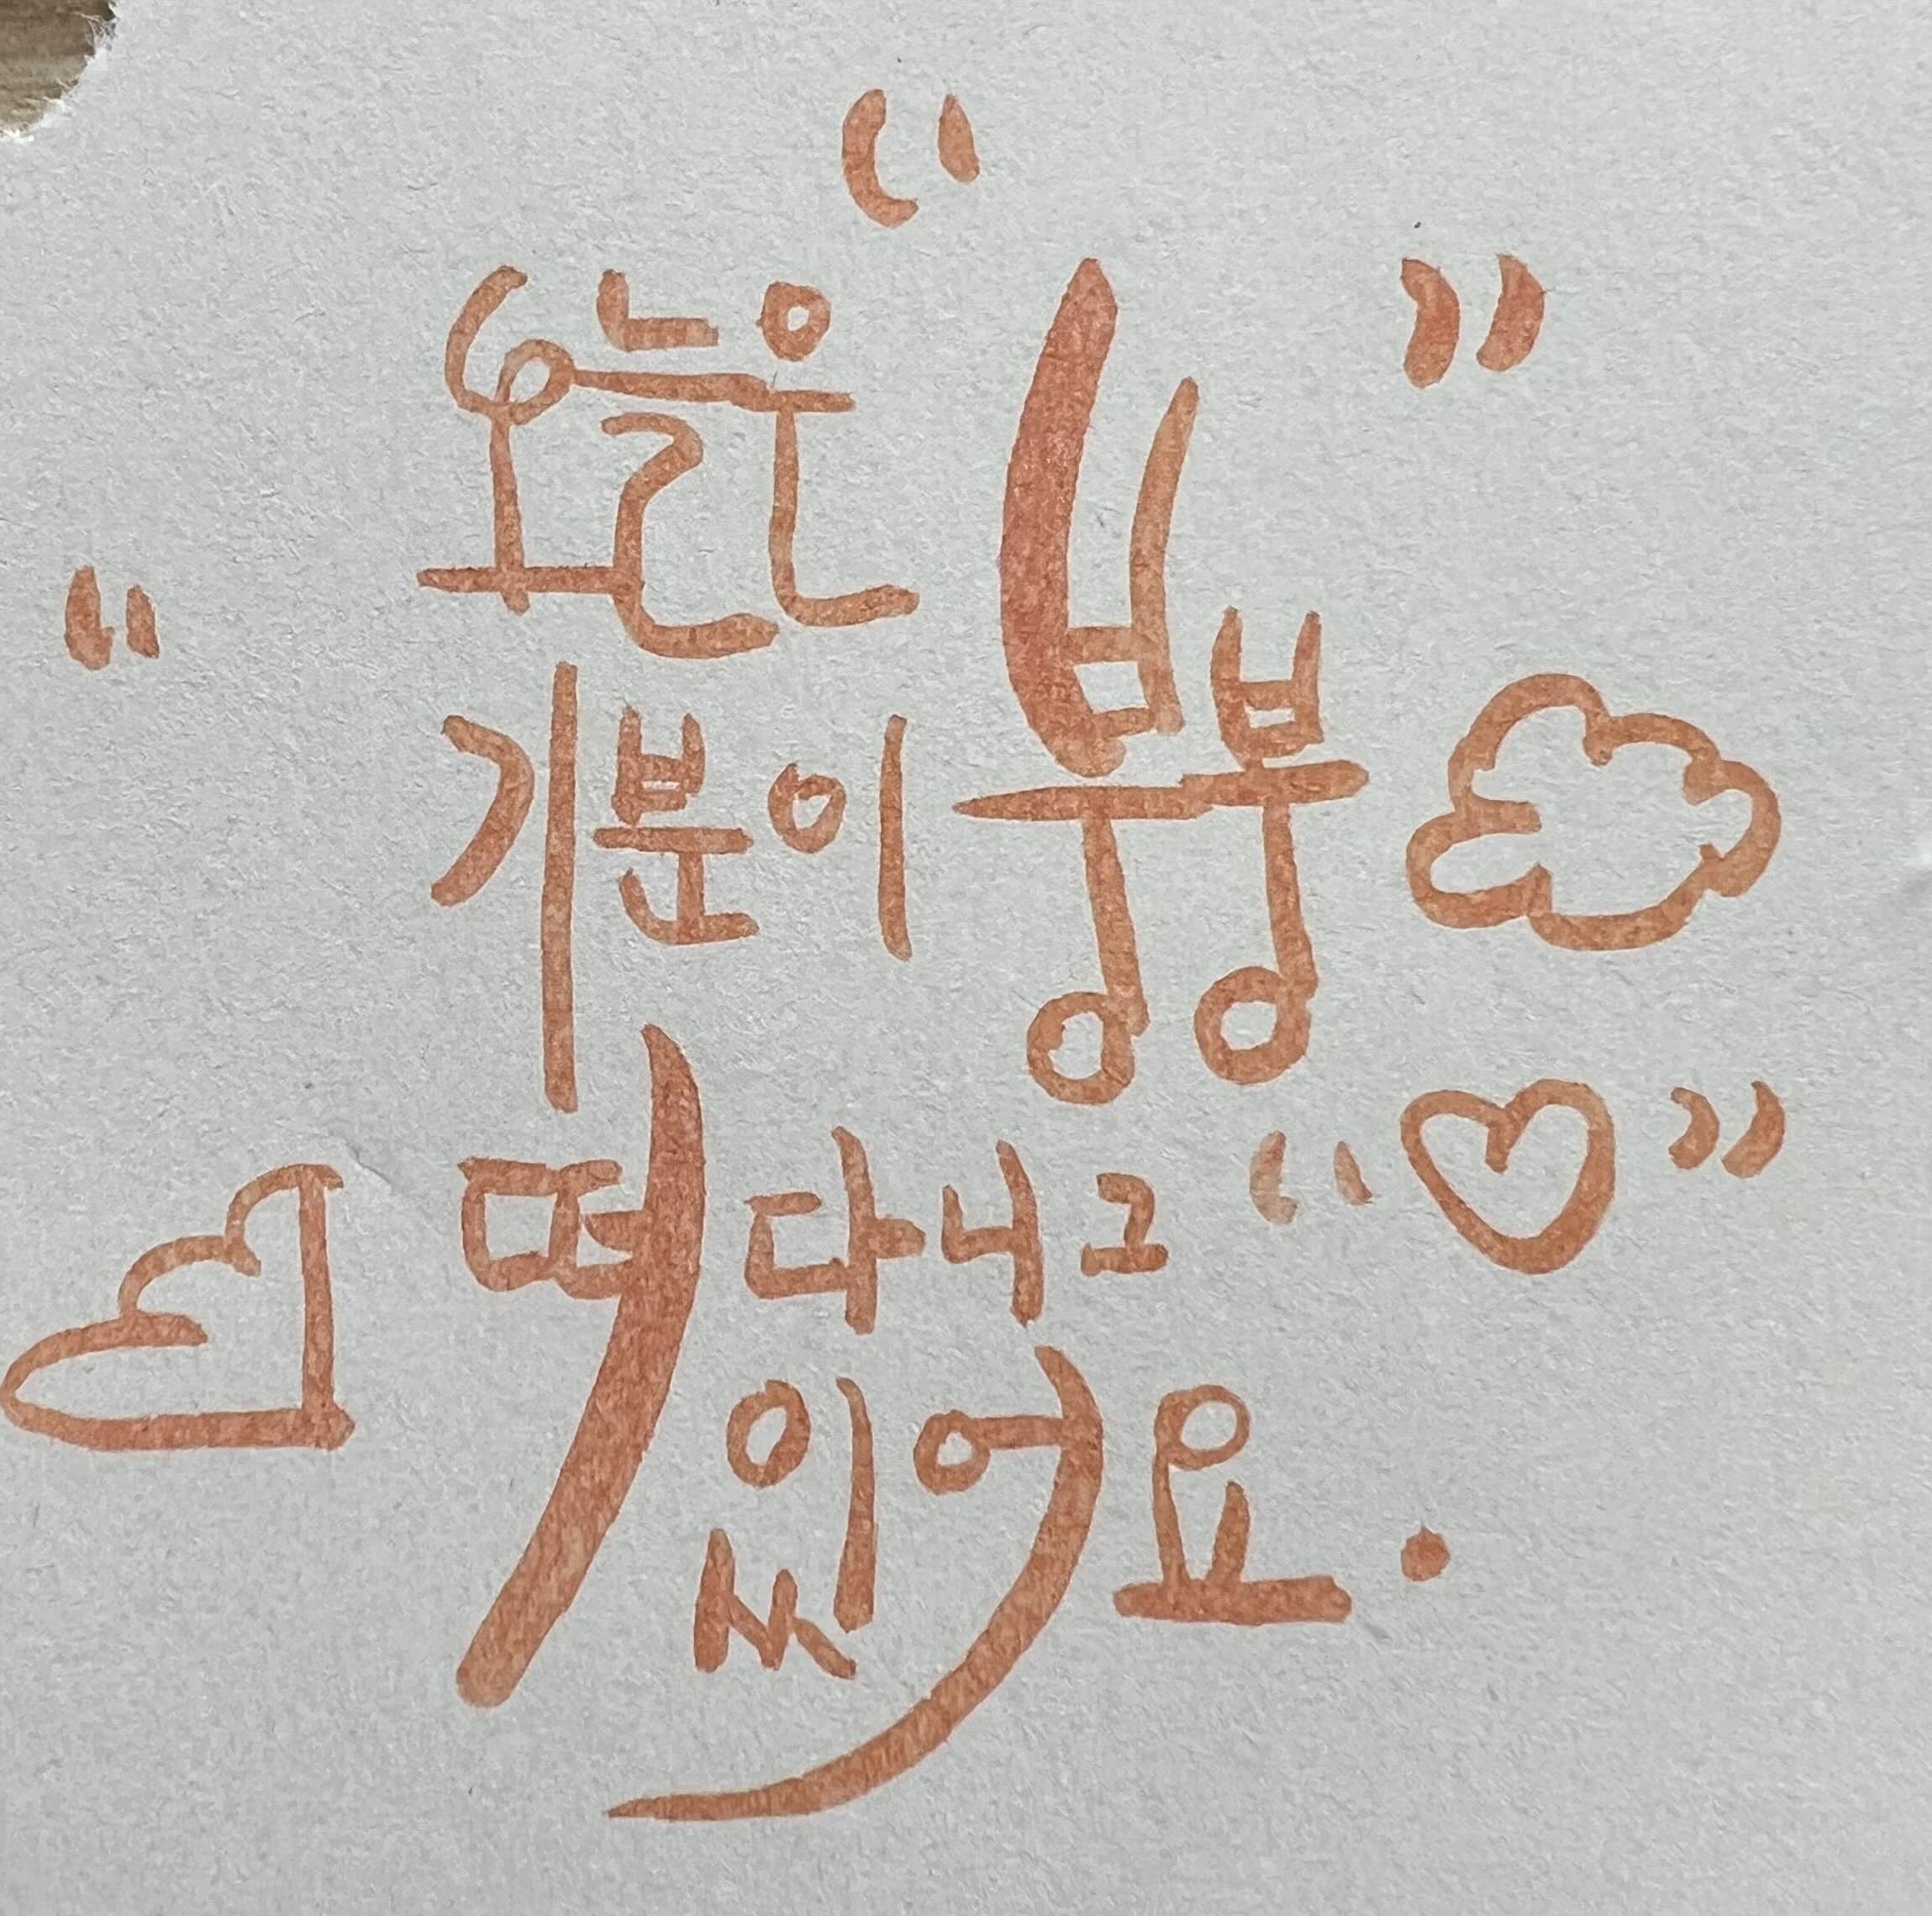 오늘은
기분이 “붕붕”
떠다니고 “♡”
있어요.